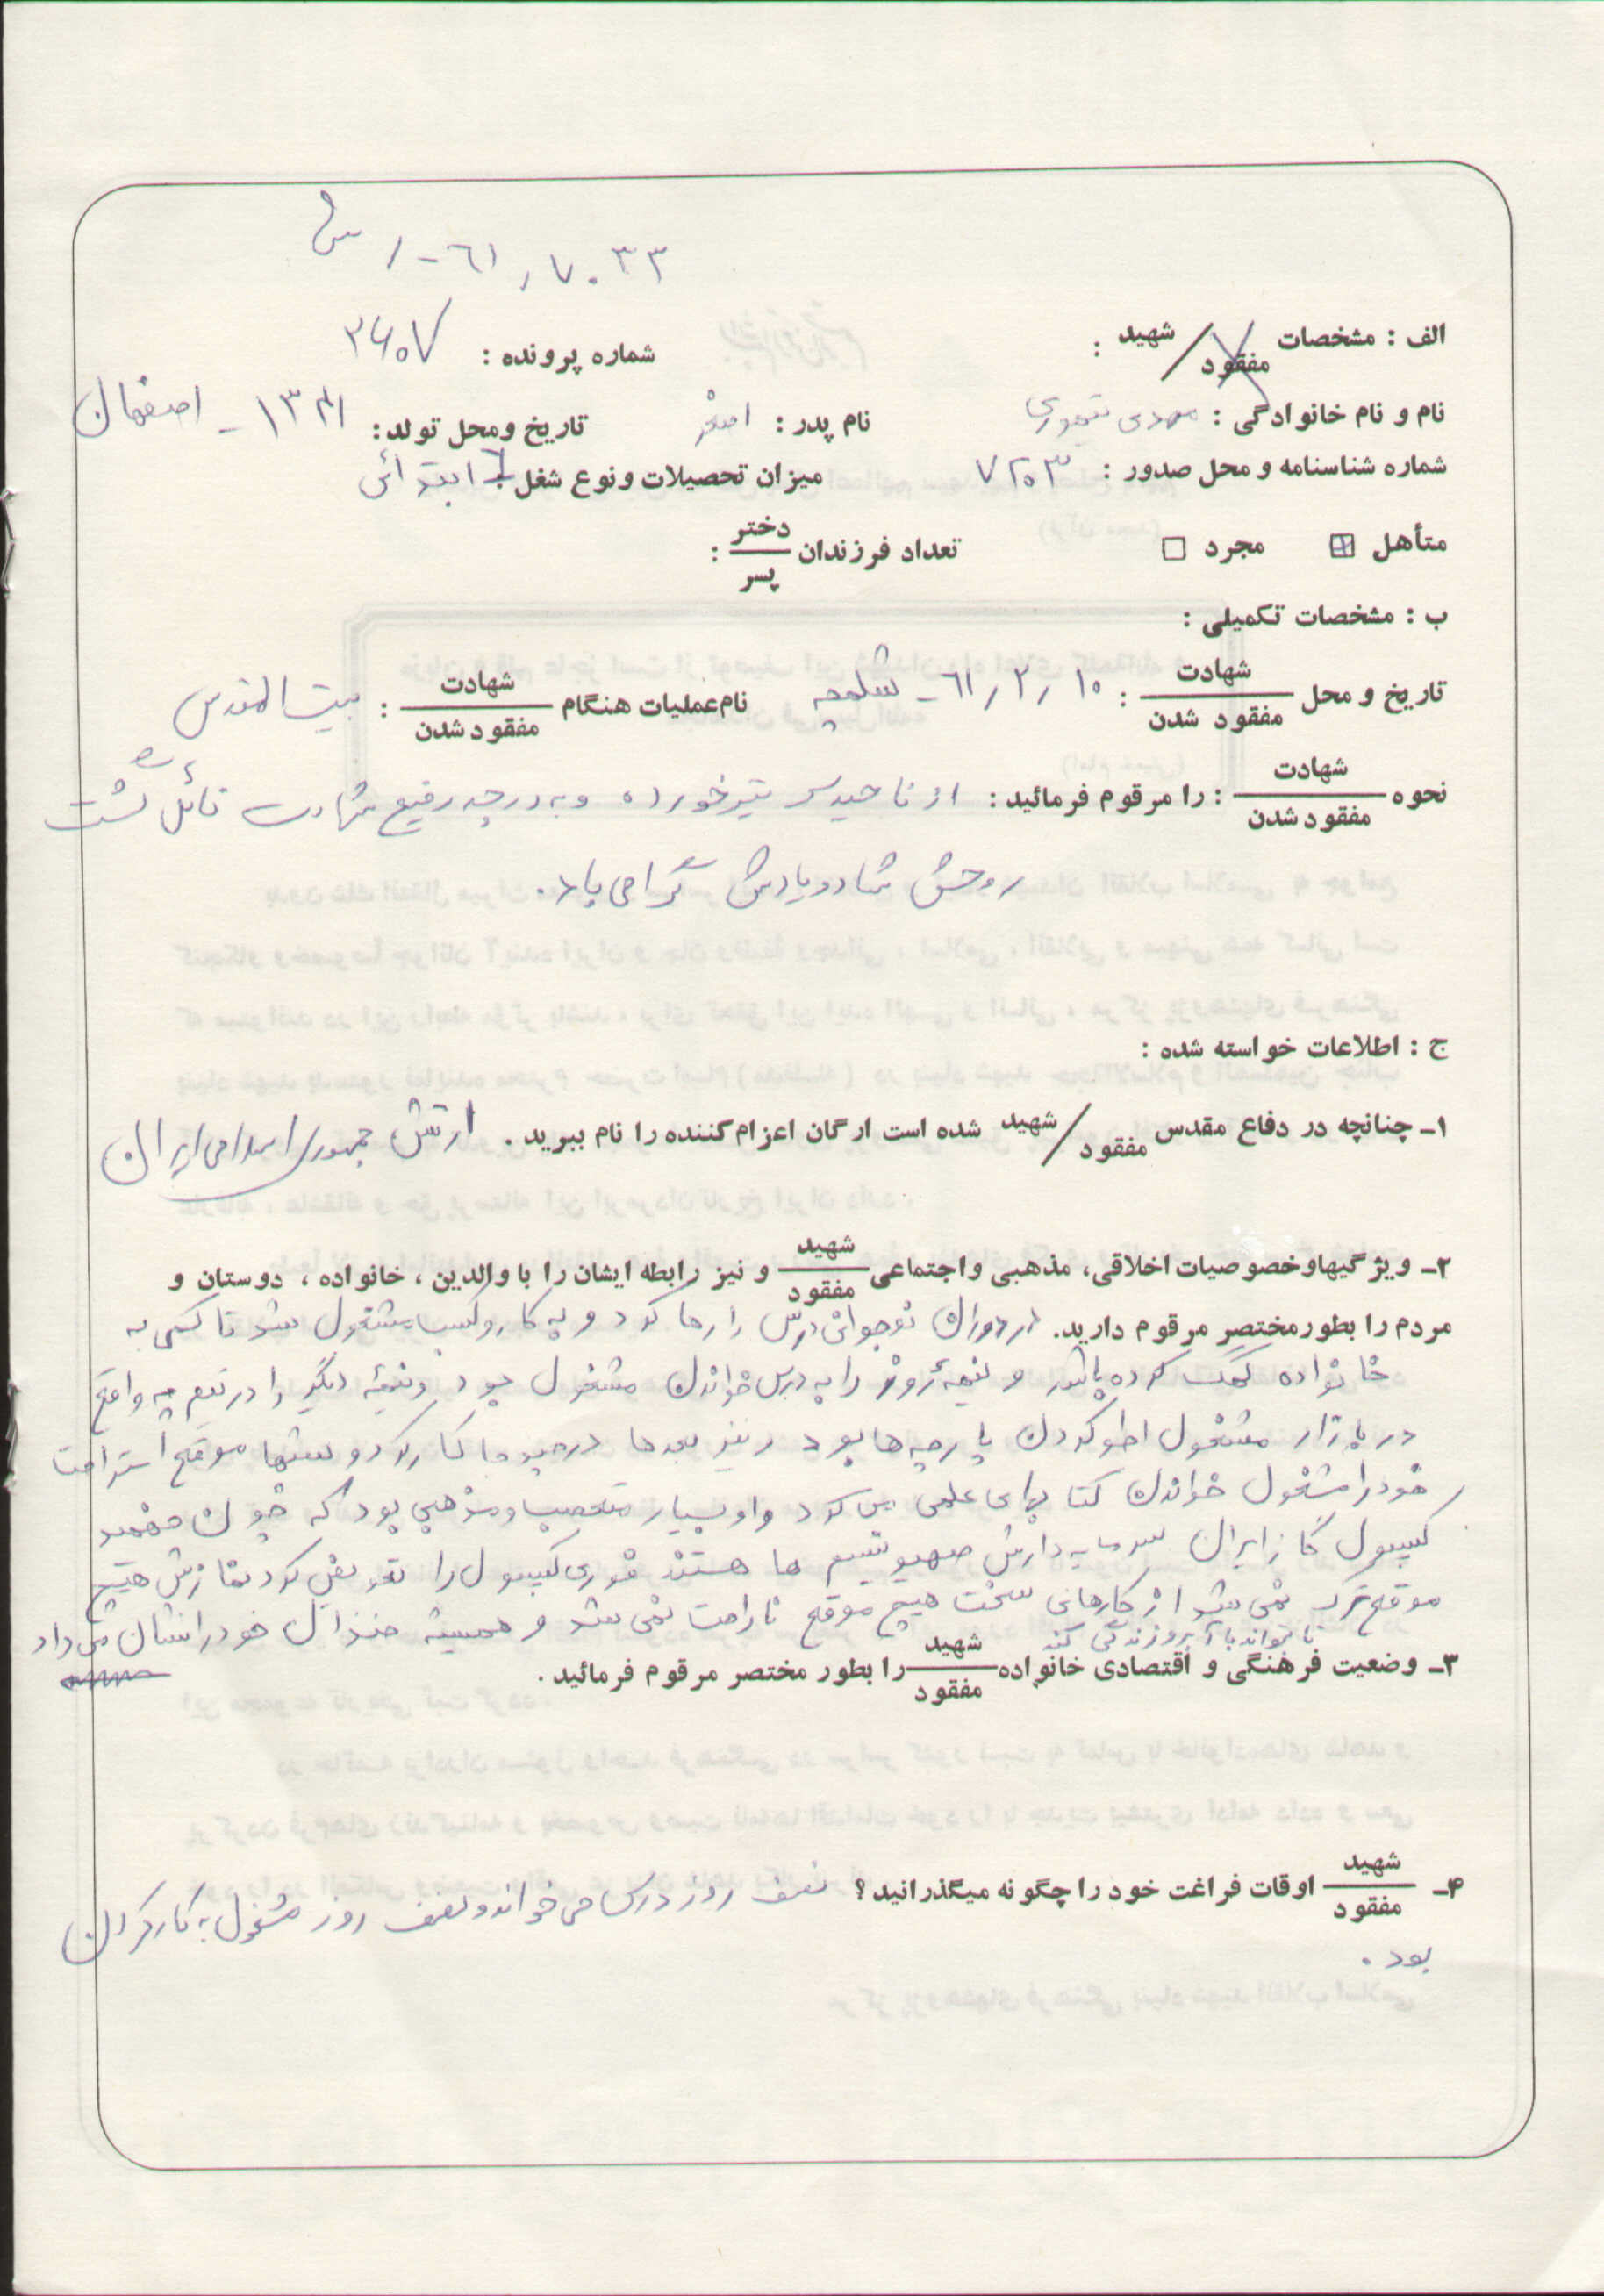 ۷۰۳۳ ر ۶۱ - ۱ س
الف : مشخصات شهید / مفقود :
شماره پرونده : ۲۶۰۷
نام و نام خانوادگی : مهدی تیموری نام پدر : اصغر تاریخ ومحل تولد : ۱۳۴۱ - اصفهان
شماره شناسنامه و محل صدور : ۷۲۰۳ میزان تحصیلات و نوع شغل : ۶ ابتدائی
متأهل مجرد تعداد فرزندان دختر / پسر :
ب : مشخصات تکمیلی :
تاریخ و محل شهادت / مفقود شدن : ۶۱/۲/۱۰ - شلمچه نام عملیات هنگام شهادت / مفقود شدن : بیت المقدس
نحوه شهادت / مفقود شدن : را مرقوم فرمائید : از ناحیه سر تیر خورده و به درجه رفیع شهادت نائل گشت
روحش شاد و یادش گرامی باد .
ج : اطلاعات خواسته شده :
۱- چنانچه در دفاع مقدس شهید / مفقود شده است ارگان اعزام کننده را نام ببرید . ارتش جمهوری اسلامی ایران
۲- ویژگیها و خصوصیات اخلاقی، مذهبی واجتماعی شهید / مفقود و نیز رابطه ایشان را با والدین ، خانواده ، دوستان و
مردم را بطور مختصر مرقوم دارید. در دوران نوجوانی درس را رها کرد و به کار و کسب مشغول شد تا کمی به
خانواده کمک کرده باشد و نیمهٔ روز را به درس خواندن مشغول بود و نیمهٔ دیگر را در تیمچه واقع
در بازار مشغول اطو کردن پارچه ها بود و نیز بعدها در کار کرد و شبها موقع استراحت
خود را مشغول خواندن کتابهای علمی می کرد و او بسیار متعصب و مذهبی بود که چون فهمید
کپسول گاز ایران سرمایه دارش صهیونیسم ها هستند فوری کپسول را تعویض کرد نمازش هیچ
موقع ترک نمی شد از کارهای سخت هیچ موقع ناراحت نمی شد و همیشه خندان خود را نشان می داد
تا بتواند با آبرو زندگی کند
۳- وضعیت فرهنگی و اقتصادی خانواده شهید / مفقود را بطور مختصر مرقوم فرمائید .
۴- شهید / مفقود اوقات فراغت خود را چگونه میگذرانید ؟ نصف روز درس می خواند و نصف روز مشغول به کار کردن
بود .